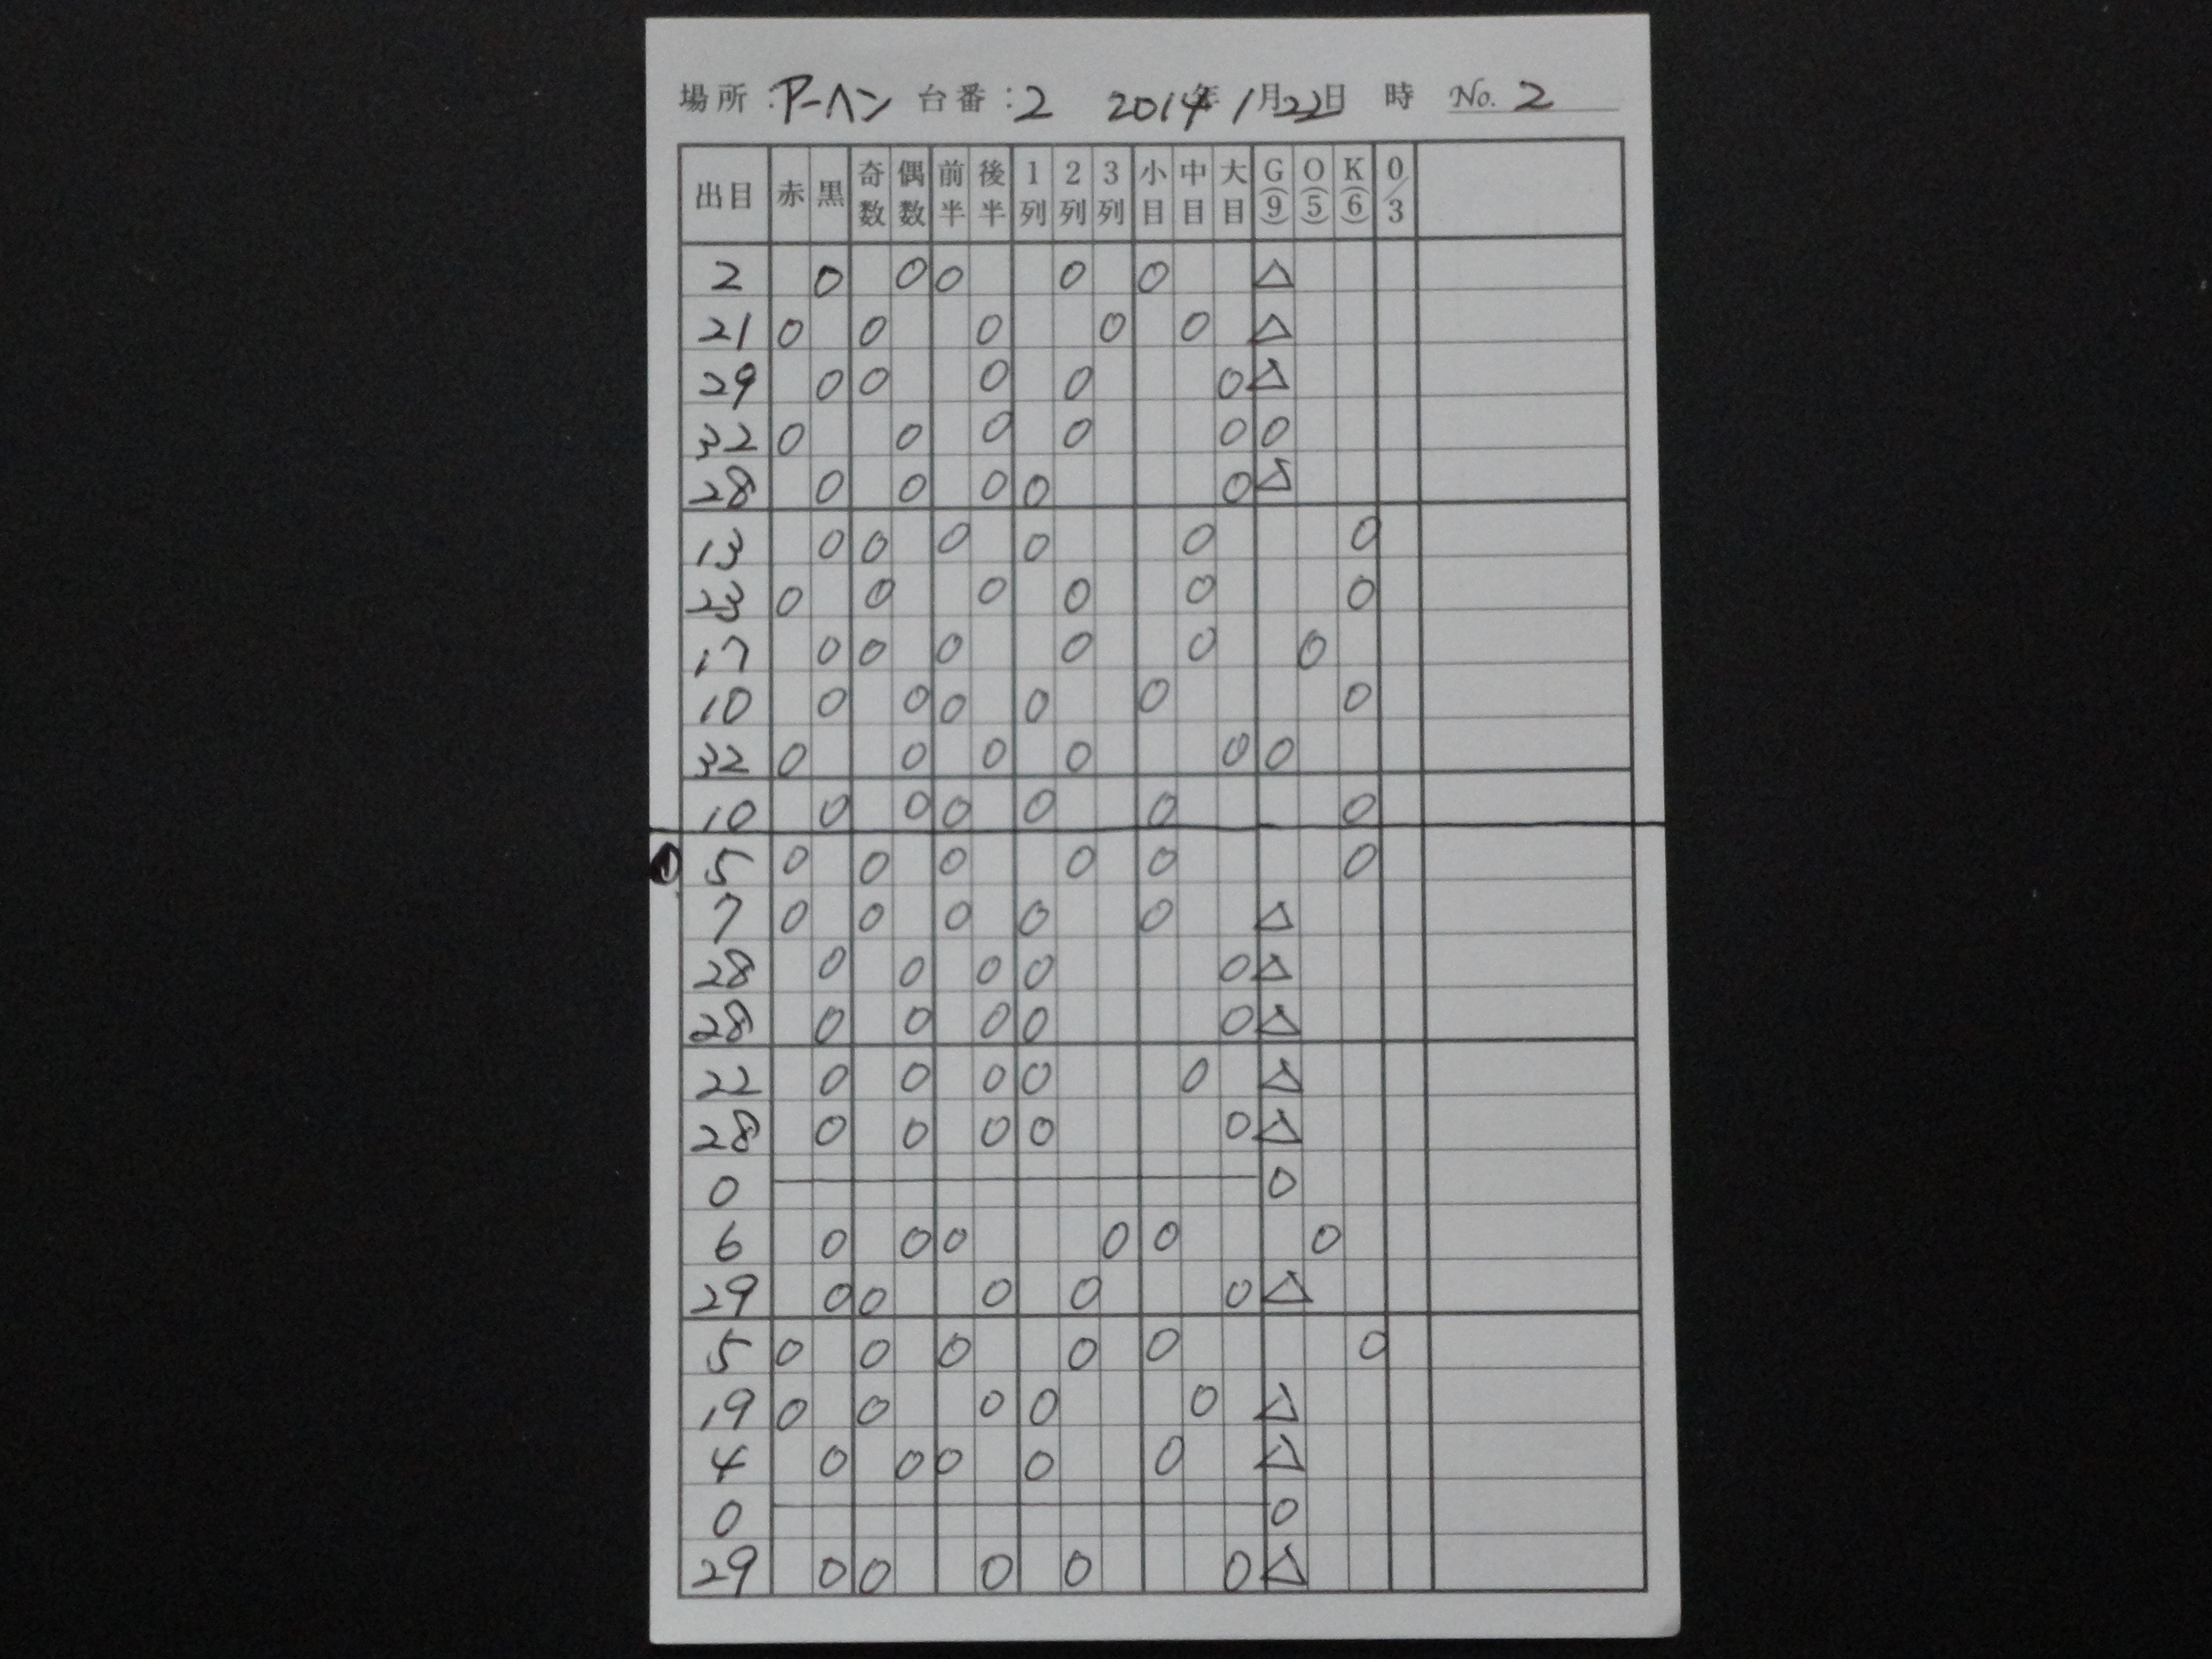 場所:アーヘン 台番:2 2014年1月22日 時 No. 2
出目 赤 黒 奇数 偶数 前半 後半 1列 2列 3列 小目 中目 大目 G(9) O(5) K(6) 0/3
2 0 0 0 0 0 △
21 0 0 0 0 0 △
29 0 0 0 0 0 △
32 0 0 0 0 0 0
28 0 0 0 0 0 △
13 0 0 0 0 0 0
23 0 0 0 0 0 0
17 0 0 0 0 0 0
10 0 0 0 0 0 0
32 0 0 0 0 0 0
10 0 0 0 0 0 0
5 0 0 0 0 0 0
7 0 0 0 0 0 △
28 0 0 0 0 0 △
28 0 0 0 0 0 △
22 0 0 0 0 0 △
28 0 0 0 0 0 △
0 0
6 0 0 0 0 0 0
29 0 0 0 0 0 △
5 0 0 0 0 0 0
19 0 0 0 0 0 △
4 0 0 0 0 0 △
0 0
29 0 0 0 0 0 △